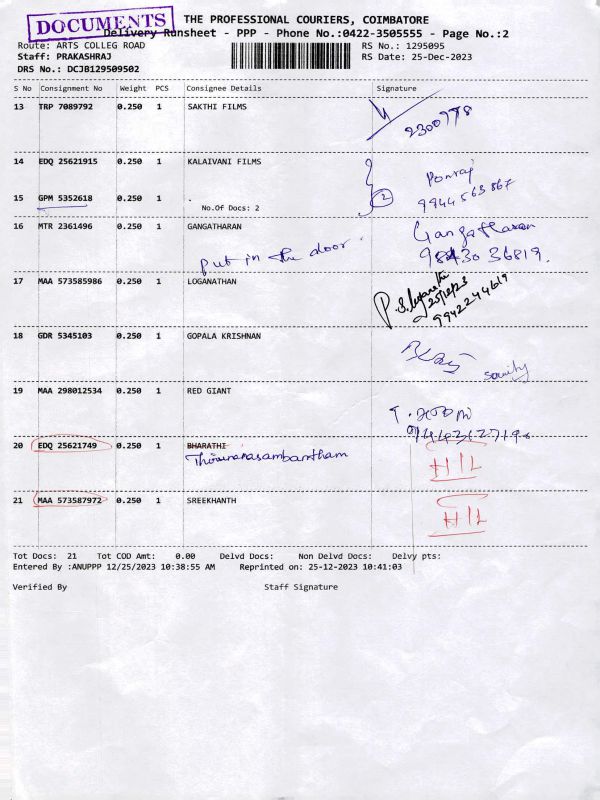 DOCUMENTS
THE PROFESSIONAL COURIERS, COIMBATORE
Delivery Runsheet - PPP - Phone No.:0422-3505555 - Page No.:2
Route: ARTS COLLEG ROAD
RS No.: 1295095
Staff: PRAKASHRAJ
RS Date: 25-Dec-2023
DRS No.: DCJB129509502
S No Consignment No Weight PCS Consignee Details Signature
13 TRP 7089792 0.250 1 SAKTHI FILMS
2300778
14 EDQ 25621915 0.250 1 KALAIVANI FILMS
Ponraj
15 GPM 5352618 0.250 1 .
No.Of Docs: 2
2
9944563867
16 MTR 2361496 0.250 1 GANGATHARAN
Gangatharan
put in the door.
36819.
17 MAA 573585986 0.250 1 LOGANATHAN
25/12/23
9942244619
18 GDR 5345103 0.250 1 GOPALA KRISHNAN
19 MAA 298012534 0.250 1 RED GIANT
20 EDQ 25621749 0.250 1 BHARATHI
HIL
21 MAA 573587972 0.250 1 SREEKHANTH
HIL
Tot Docs: 21 Tot COD Amt: 0.00 Delvd Docs: Non Delvd Docs: Delvy pts:
Entered By :ANUPPP 12/25/2023 10:38:55 AM Reprinted on: 25-12-2023 10:41:03
Verified By Staff Signature